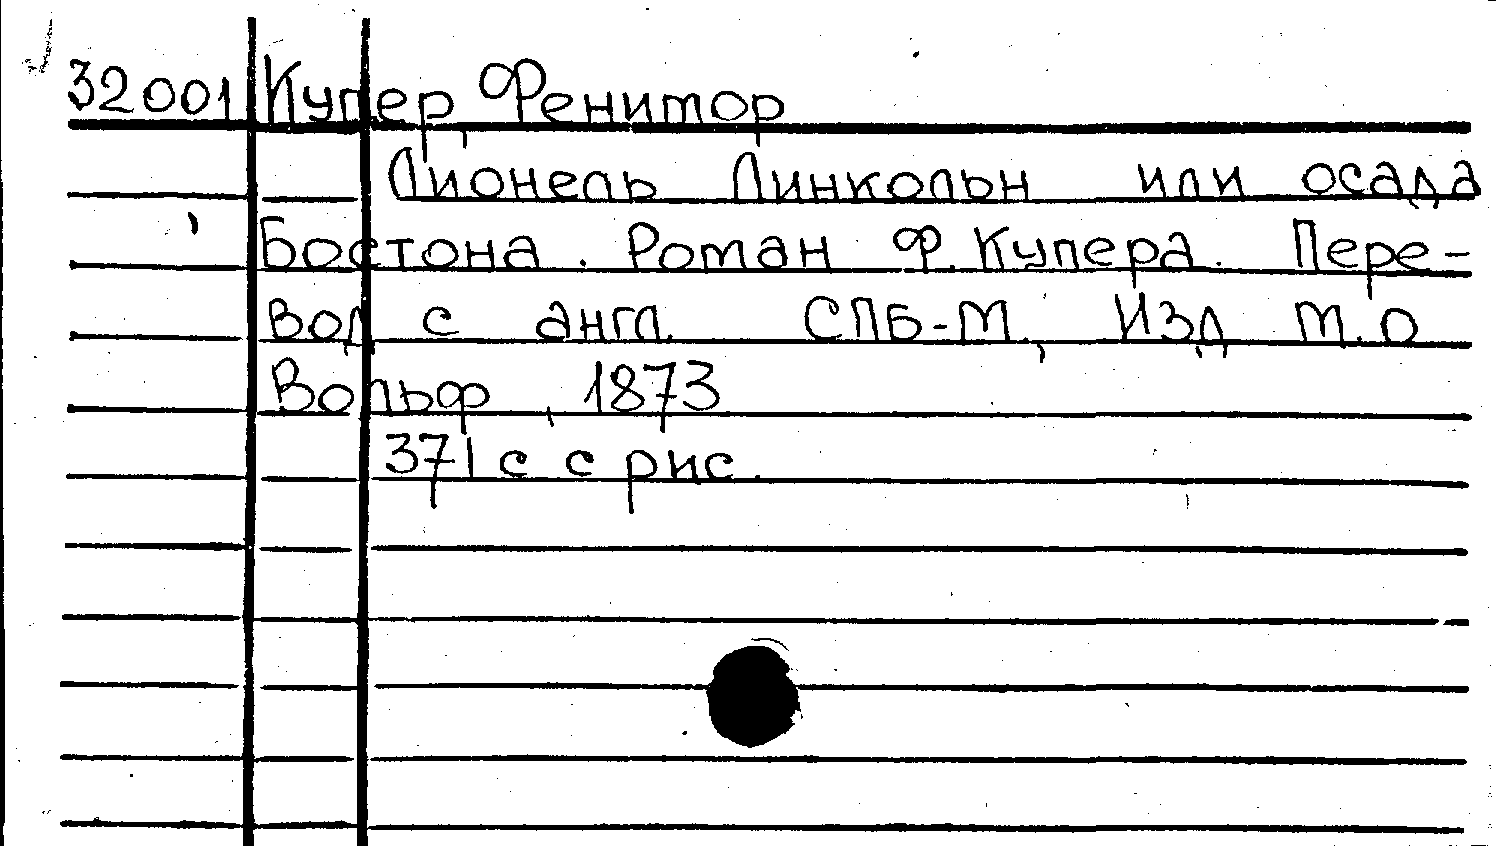 32001 Купер, Фенитор
Лионель Линкольн или осада
Бостона. Роман Ф. Купера. Пере-
вод с англ. СПБ-М., Изд М.О
Вольф, 1873
371 с с рис.